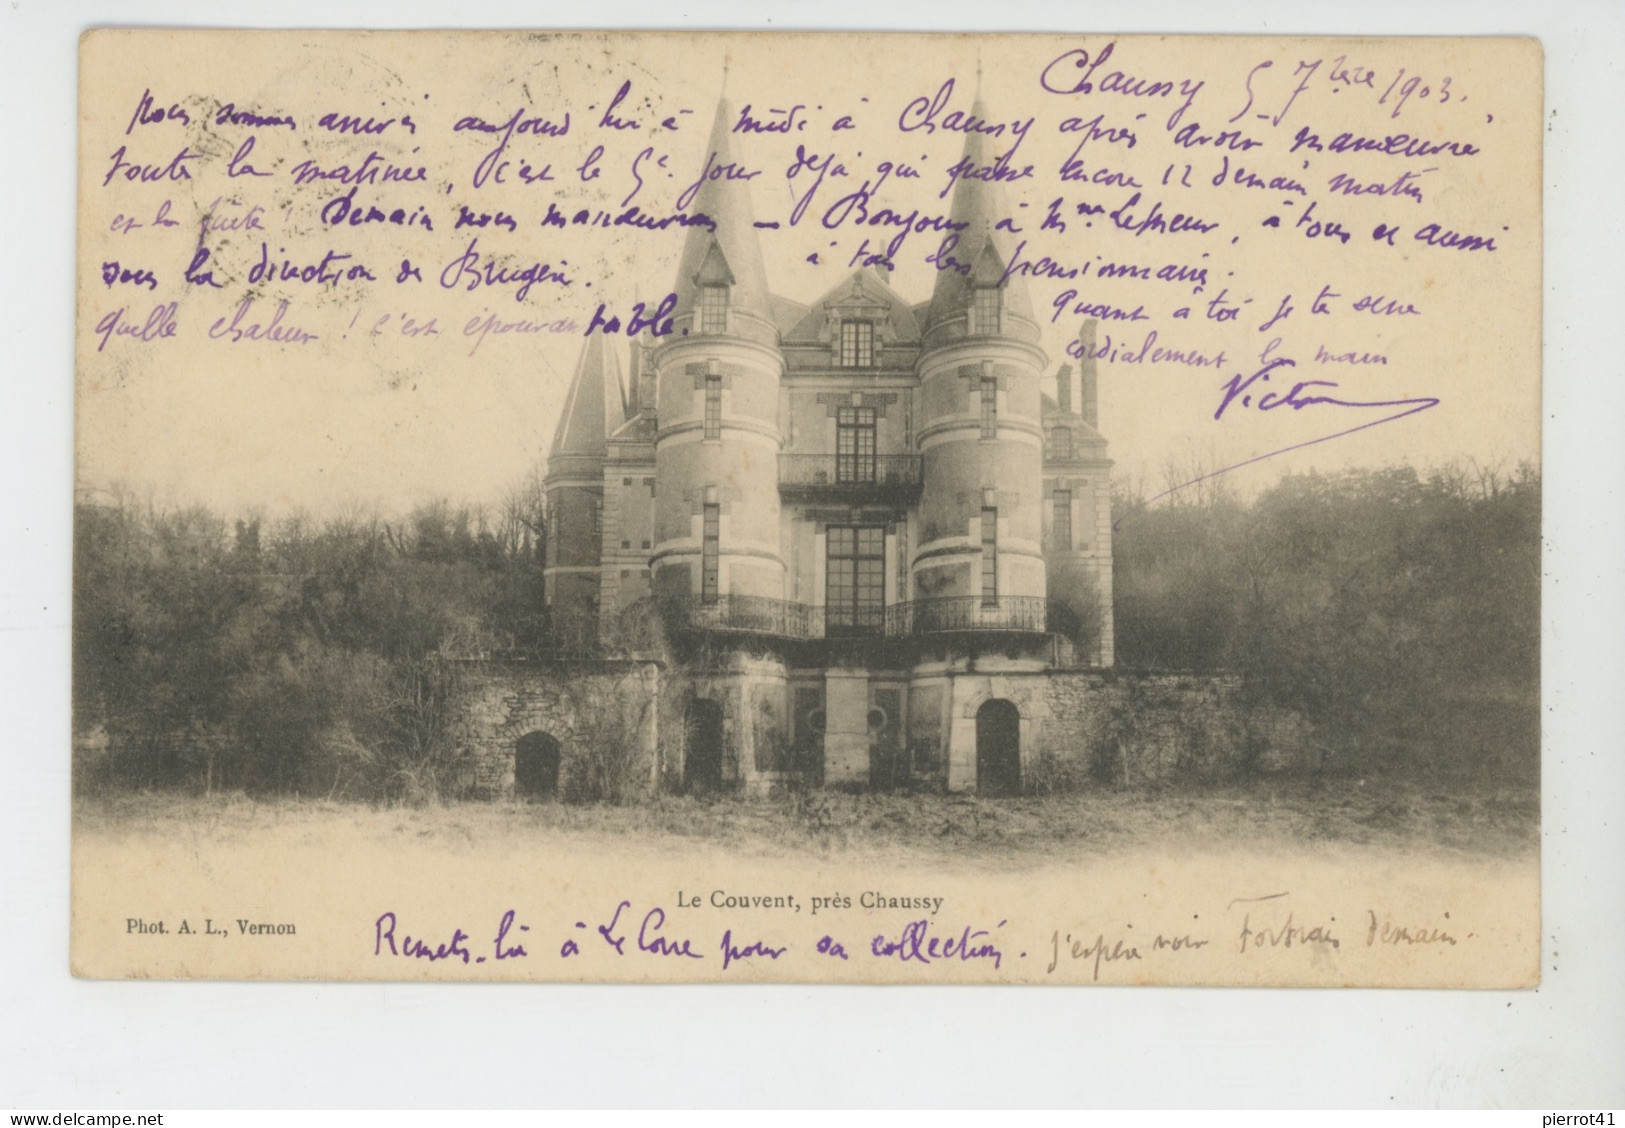 Chaussy 5 7bre 1903.
Nous sommes arrivés aujourd'hui à midi à Chaussy après avoir manœuvré
toute la matinée, c'est le 5e jour déjà qui passe encore 12 demain matin
et la fuite ! Demain nous manœuvrons — Bonjour à Mme Lesueur, à tous et aussi
sous la direction de Brugère. à tous les pensionnaires.
quelle chaleur ! c'est épouvantable. quant à toi je te serre
cordialement la main
Victor
Le Couvent, près Chaussy
Phot. A. L., Vernon
Remets-la à Le Corre pour sa collection. J'espère voir demain.
pierrot41